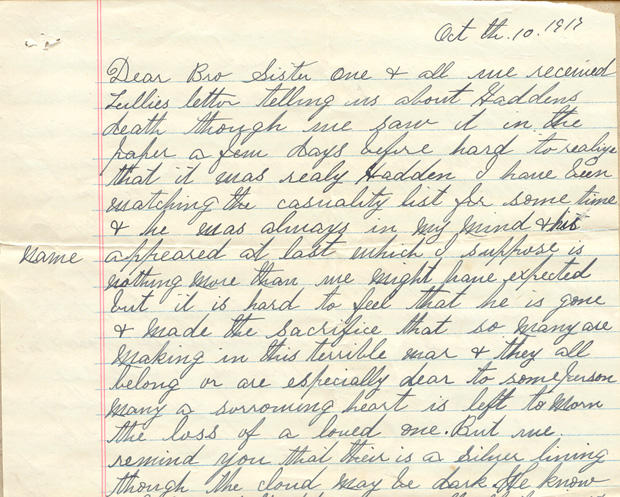 Oct th. 10. 1917
Dear Bro Sister one & all we received
Lullies letter telling us about Haddens
death though we saw it in the
paper a few days before hard to realize
that it was realy Hadden I have been
watching the casuality list for some time
& he was always in my mind & his
name appeared at last which I suppose is
nothing more than we might have expected
but it is hard to feel that he is gone
& made the sacrifice that so many are
making in this terrible war & they all
belong or are especially dear to some person
many a sorrowing heart is left to morn
the loss of a loved one. But we
remind you that their is a silver lining
though the cloud may be dark. We know